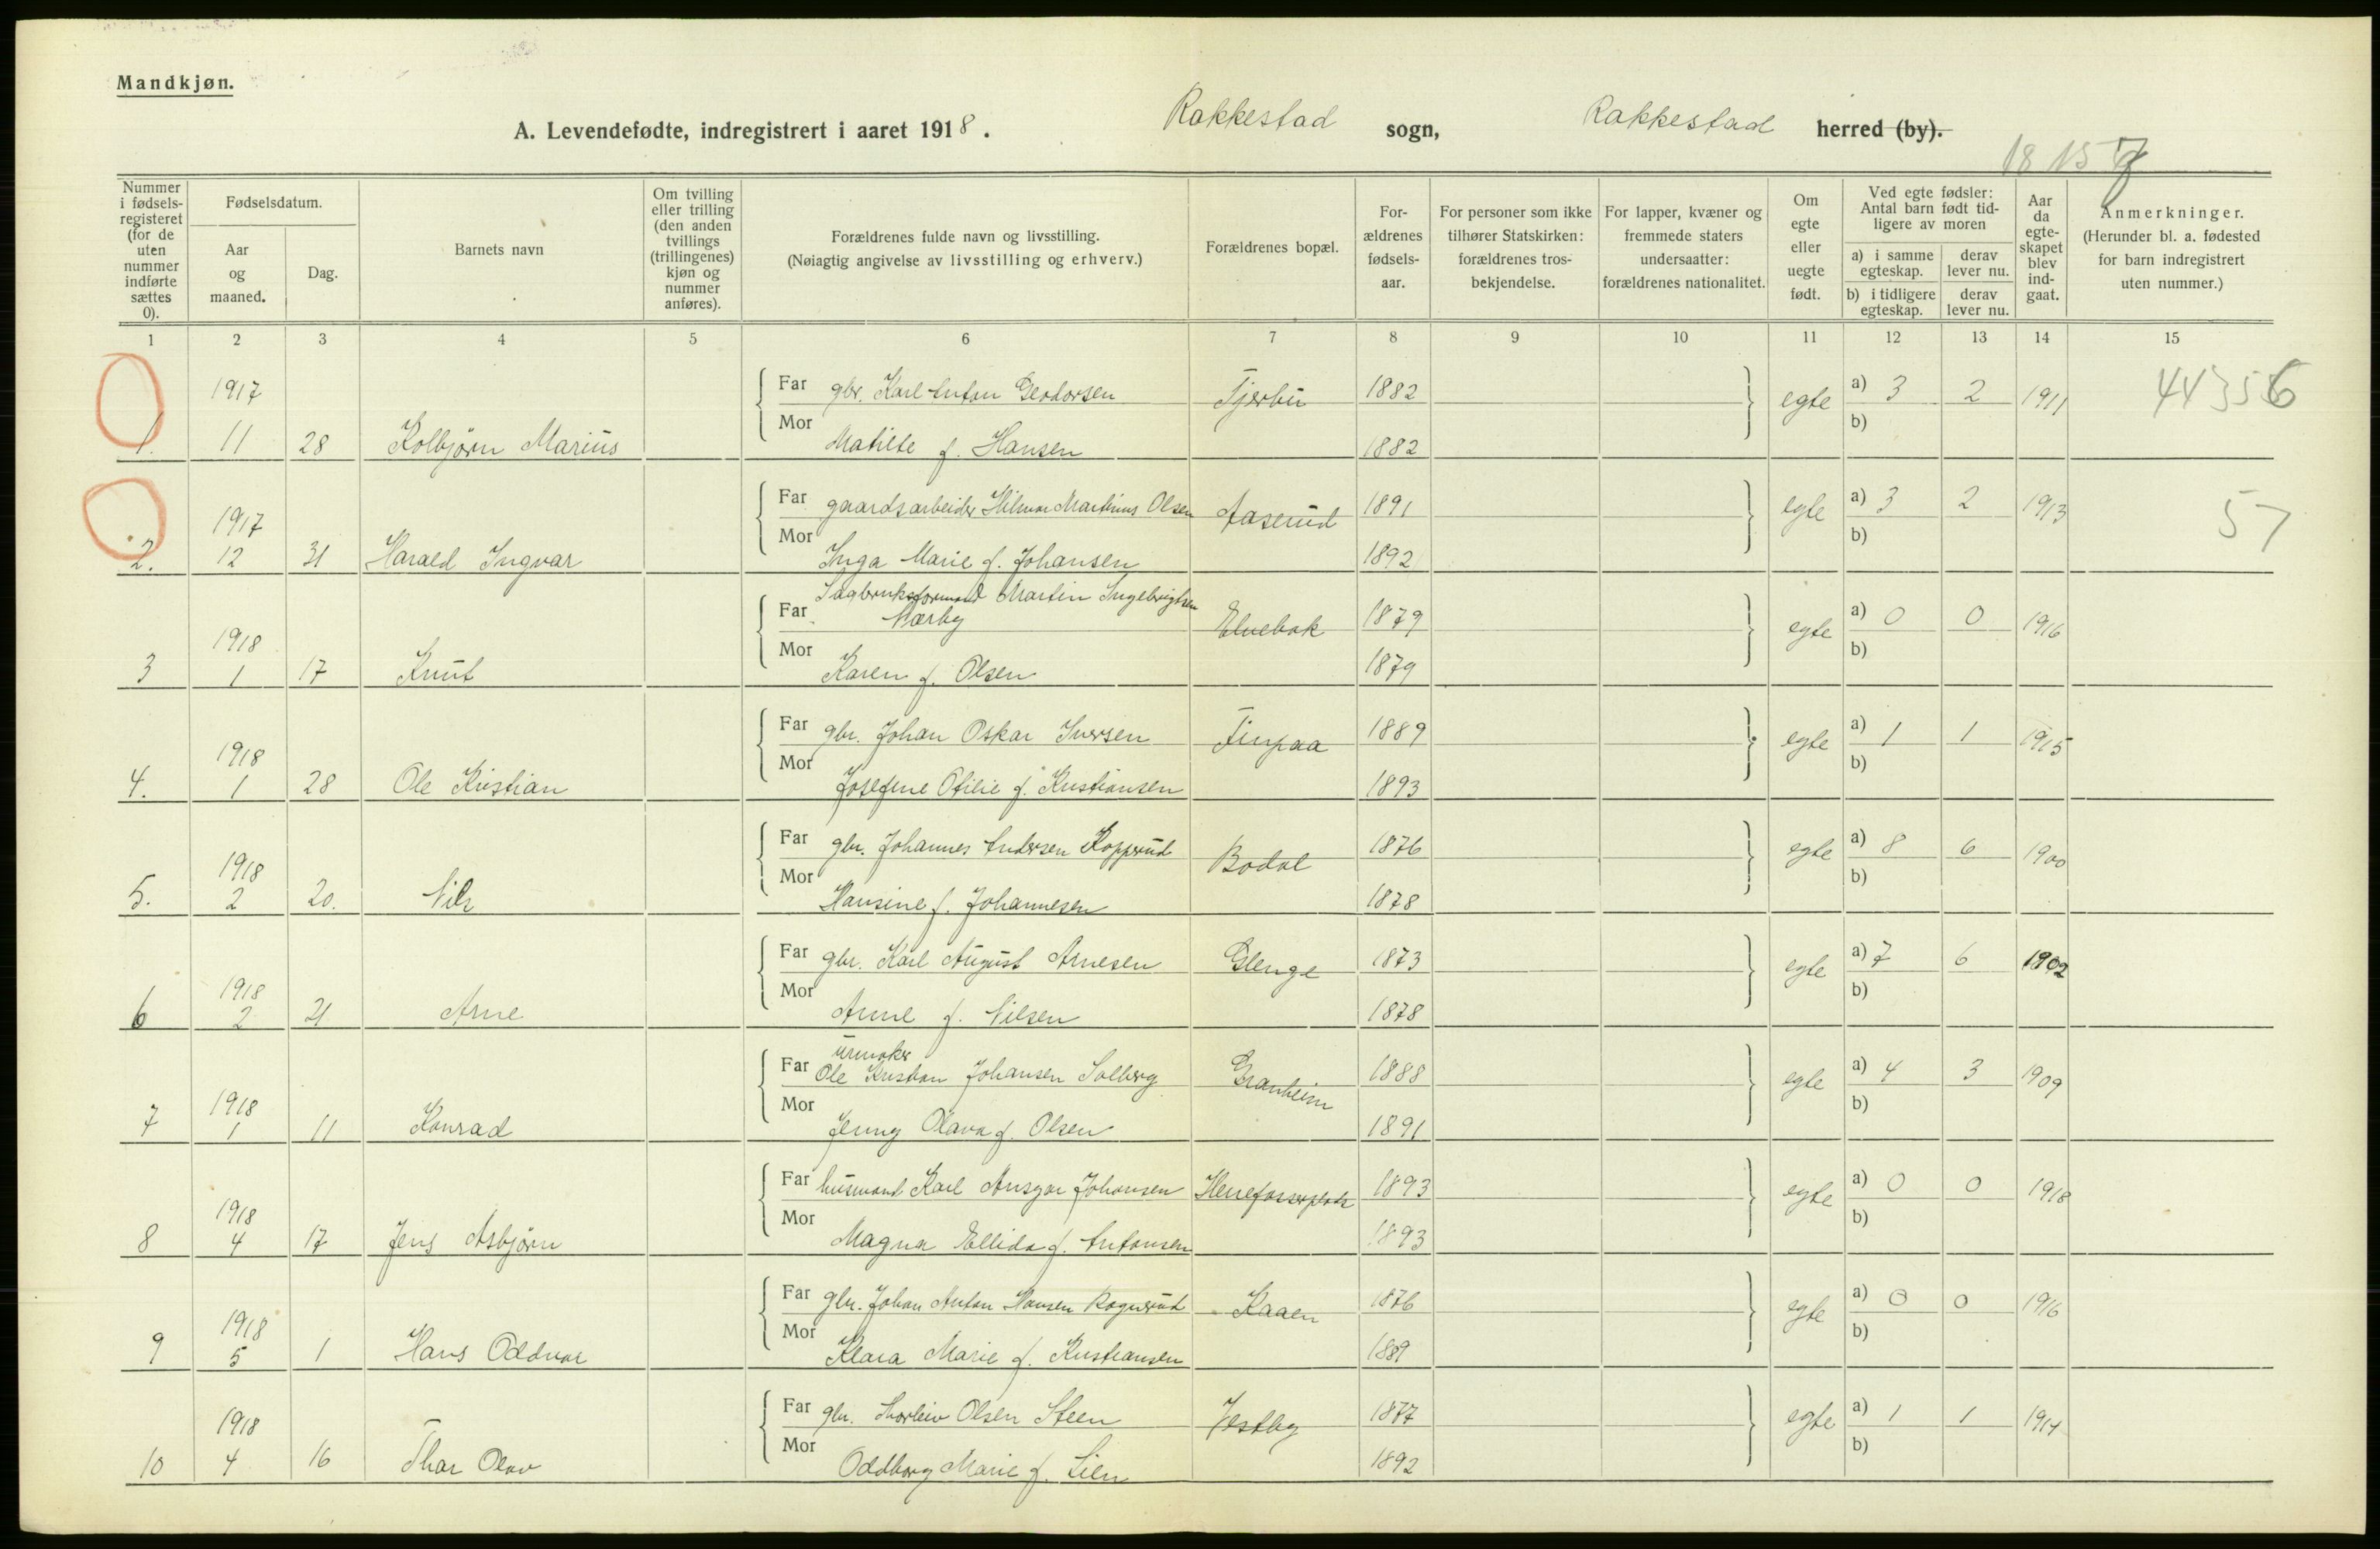 Mandkjøn.
A. Levendefødte, indregistrert i aaret 1918. Rakkestad sogn, Rakkestad herred (by).
18 15 7
Nummer i fødsels-registeret (for de uten nummer indførte sættes 0).
Fødselsdatum.
Aar og maaned.
Dag.
Barnets navn
Om tvilling eller trilling (den anden tvillings (trillingenes) kjøn og nummer anføres).
Forældrenes fulde navn og livsstilling.
(Nøiagtig angivelse av livsstilling og erhverv.)
Forældrenes bopæl.
For-ældrenes fødsels-aar.
For personer som ikke tilhører Statskirken: forældrenes tros-bekjendelse.
For lapper, kvæner og fremmede staters undersaatter: forældrenes nationalitet.
Om egte eller uegte født.
Ved egte fødsler: Antal barn født tid-ligere av moren
a) i samme egteskap. derav lever nu.
b) i tidligere egteskap. derav lever nu.
Aar da egte-skapet blev ind-gaat.
Anmerkninger.
(Herunder bl. a. fødested for barn indregistrert uten nummer.)
1 2 3 4 5 6 7 8 9 10 11 12 13 14 15
1917 Far gbr. Karl Anton Teodorsen Tjerbu 1882 egte a) 3 2 1911 44356
1. 11 28 Kolbjørn Marius Mor Matilde f. Hansen 1882 b)
1917 Far gaardsarbeider Hilmar Martinius Olsen Aaserud 1891 egte a) 3 2 1913 57
2. 12 31 Harald Ingvar Mor Inga Marie f. Johansen 1892 b)
Sagbruksformand Martin Ingebrigtsen
1918 Far Nærby Elvebak 1879 egte a) 0 0 1916
3 1 17 Knut Mor Karen f. Olsen 1879 b)
1918 Far gbr. Johan Oskar Iversen 1889 egte a) 1 1 1915
4. 1 28 Ole Kristian Mor Josefine Otilie f. Kristiansen 1893 b)
1918 Far gbr. Johannes Andersen Kopperud Bodal 1876 egte a) 8 6 1900
5. 2 20. Nils Mor Hansine f. Johannesen 1878 b)
1918 Far gbr. Karl August Arnesen Glenge 1873 egte a) 7 6 1902
6 2 21 Arne Mor Anne f. Nilsen 1878 b)
urmaker
1918 Far Ole Kristian Johansen Solberg Granheim 1888 egte a) 4 3 1909
7 1 11 Konrad Mor Jenny Olava f. Olsen 1891 b)
1918 Far husmand Karl Ansgar Johansen 1893 egte a) 0 0 1918
8 4 17 Jens Asbjørn Mor Magna Ellida f. Antonsen 1893 b)
1918 Far gbr. Johan Anton Hansen Rognerud Kaaen 1876 egte a) 0 0 1916
9 5 1 Hans Oddvar Mor Klara Marie f. Kristiansen 1889 b)
1918 Far gbr. Thorleiv Olsen Steen Vestby 1877 egte a) 1 1 1914
10 4 16 Thor Olav Mor Oddborg Marie f. Lien 1892 b)